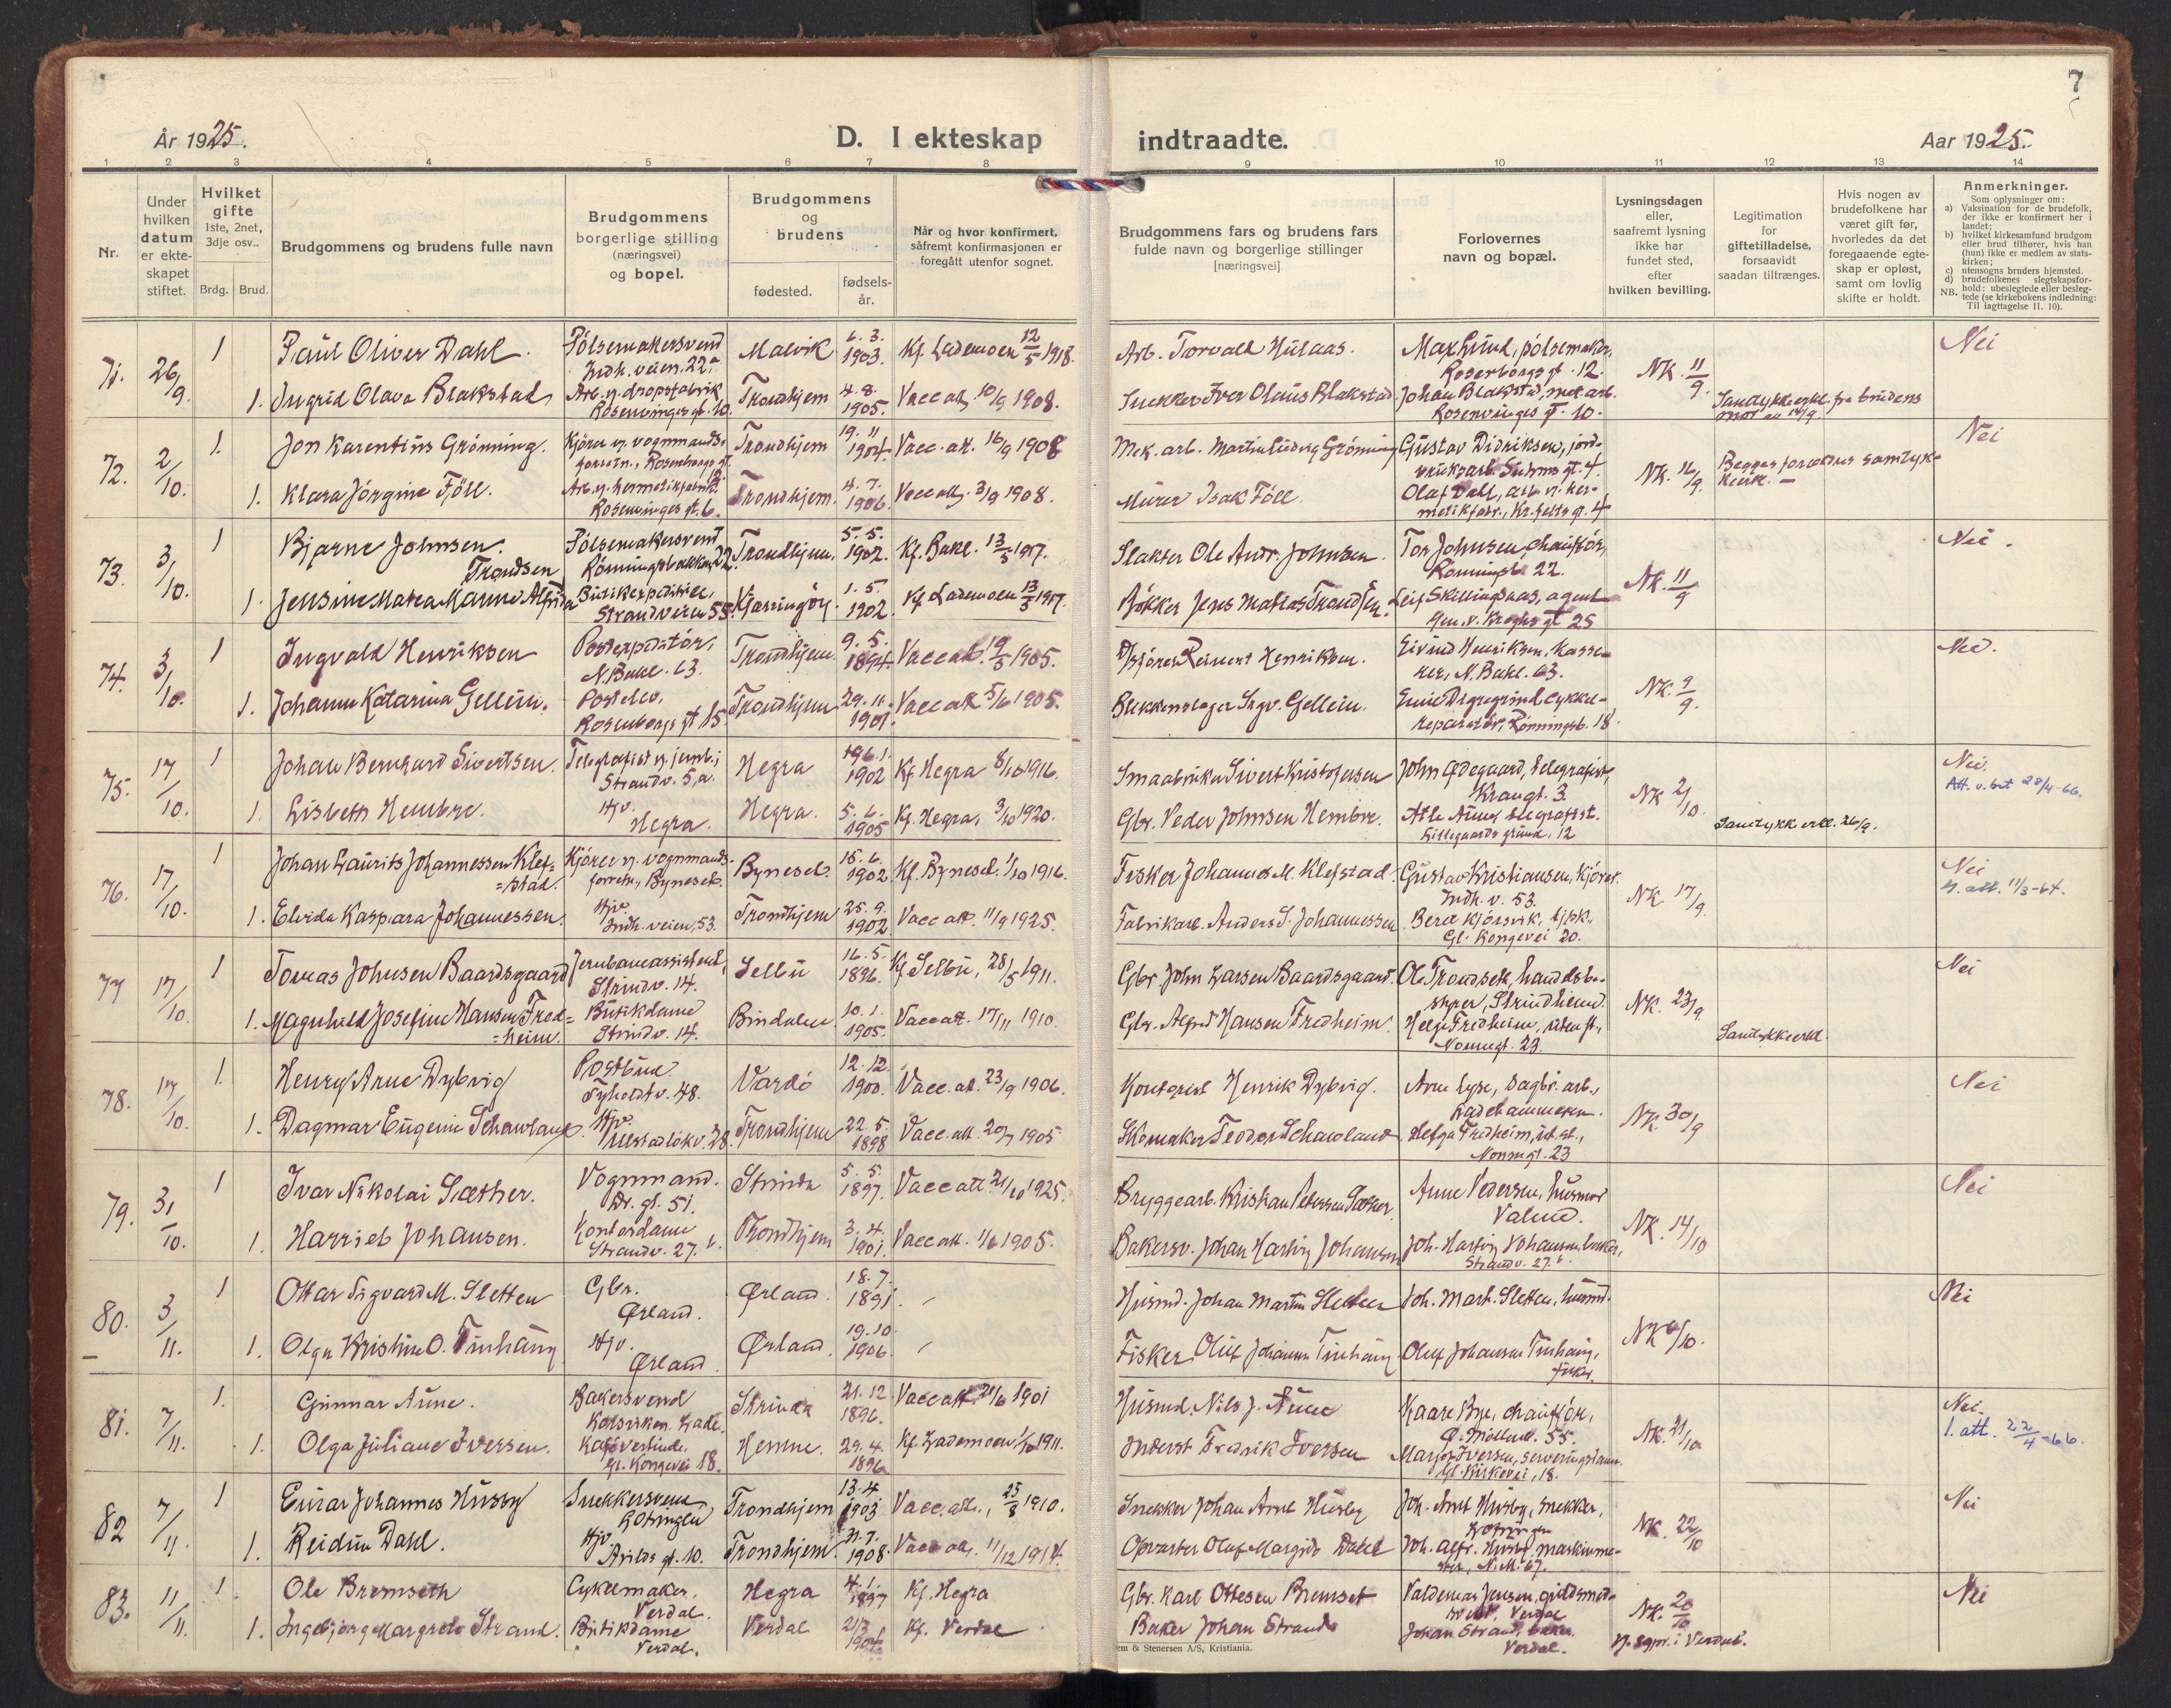 7
År 1925.
D. I ekteskap
indtraadte.
Aar 1925.
1 2 3 4 5 6 7 8 9 10 11 12 13 14
Nr.
Under hvilken datum er ekte-skapet stiftet.
Hvilket gifte 1ste, 2net, 3dje osv..
Brdg. Brud.
Brudgommens og brudens fulle navn
Brudgommens borgerlige stilling (næringsvei) og bopel.
Brudgommens og brudens
fødested.
fødsels-år.
Når og hvor konfirmert, såfremt konfirmasjonen er foregått utenfor sognet.
Brudgommens fars og brudens fars fulde navn og borgerlige stillinger [næringsvei]
Forlovernes navn og bopæl.
Lysningsdagen eller, saafremt lysning ikke har fundet sted, efter hvilken bevilling.
Legitimation for giftetilladelse, forsaavidt saadan tiltrænges.
Hvis nogen av brudefolkene har været gift før, hvorledes da det foregaaende egte-skap er opløst, samt om lovlig skifte er holdt.
Anmerkninger.
Som oplysninger om:
a) Vaksination for de brudefolk, der ikke er konfirmert her i landet;
b) hvilket kirkesamfund brudgom eller brud tilhører, hvis han (hun) ikke er medlem av stats-kirken;
c) utensogns bruders hjemsted.
d) brudefolkenes slegtskapsfor-hold: ubeslegtede eller besleg-tede (se kirkebokens indledning:
NB. Til iagttagelse II. 10).
71. 26/9. 1 Paul Oliver Dahl. Pölsemakersvend Indh.veien 22a Malvik 6. 3. 1903. Kf. Lademoen 12/5 1918. Arb. Torvall Hulaas. Max Lund, pölsemaker, Rosenborgs gt. 12. NK. 11/9. Nei
1. Ingrid Olava Blakstad Arb. v. dropsfabrik Rosenvinges gt. 10. Trondhjem 4. 8. 1905. Vacc att. 10/9 1908. Snekker Iver Olaus Blakstad Johan Blakstad, mek. arb. Rosenvinges gt. 10. Samtykkeerkl. fra brudens mor
72. 2/10. 1. Jon Karentius Grönning. Kjörer v. vognmands-forretn., Rosenborgs gt. Trondhjem 19. 11 1904. Vacc. att. 16/9 1908 Mek. arb. Martin Ludvig Grönning Gustav Didriksen, jord- Suhms gt. 4. NK. 16/9. Begges forældres samtyk- Nei
1. Klara Jörgine Föll. Arb. v. hermetikfabrik Rosenvinges gt. 6. Trondhjem. 4. 7. 1906. Vacc att. 3/9 1908. Murer Isak Föll. Olaf Dall, arb. v. her-metikfabr., Kr.felts gt. 4
73. 3/10. 1 Bjarne Johnsen. Pölsemakersvend Rönningsbakken 22. Trondhjem. 5. 5. 1902. Kf. Bakl. 13/5 1917. Slakter Ole Andr. Johnsen. Tor Johnsen, chaufför, Rönningsb. 22. NK. 11/9 Nei.
1. Jensine Matea Karine Alfrida Trondsen Strandveien 55. Kjerringöy. 1. 5. 1902. Kf Lademoen 13/5 1917. Bökker Jens Matias Trondsen. Leif Skillingsaas, agent Gen. v. Kroghs gt 25
74. 3/10. 1 Ingvald Henriksen Postexpeditör, N. Bakl. 63. Trondhjem 9. 5. 1894. Vacc att. 19/5 1905. Reinert Henriksen. Eivind Henriksen, kasse-rer, N. Bakl. 63. NK. 9/9. Nei.
1. Johanne Katarina Gellein. Postelev. Rosenborgs gt 15 Trondhjem 29. 11. 1901. Vacc att 5/6 1905. Blikkenslager Ingv. Gellein. cykkel-reparatör, Rönningsb. 18.
75. 17/10. 1 Johan Bernhard Sivertsen. Telegrafist v. jernb.; Strandv. 5,a. Hegra 1902 Kf Hegra 8/10 1916. Smaabruker Sivert Kristofersen John Ødegaard, telegrafist, Krangt. 3. NK 2/10. Nei. Att. v. bst 28/4-66.
1. Lisbeth Hembre. Hjv. Hegra. Hegra. 5. 6. 1905 Kf. Hegra, 3/10 1920. Gbr. Peder Johnsen Hembre. Atle Aune telegrafist. Lillegaards grund. 12 Samtykk erkl. 26/9.
76. 17/10. 1 Johan Laurits Johannessen Klef=stad. Kjörer v. vognmands-forretn., Byneset. Byneset. 15. 6. 1902. Kf. Byneset. 1/10 1916. Fisker Johannes M. Klefstad. Gustav Kristiansen, kjörer. Indh. v. 53. NK. 17/9. Nei V. att. 11/3-64.
1. Elvida Kaspara Johannessen. Hjv. Indh. veien 53. Trondhjem 25. 9. 1902 Vacc att. 11/9 1925. Fabrikarb. Anders S. Johannessen Beret Kjörsvik, Gl. Kongevei 20.
77 17/10. 1 Tomas Johnsen Baardsgaard Jernbaneassistent, Strindv. 14. Selbu 16. 5. 1896. Kf Selbu, 28/5 1911. Gbr. John Larsen Baardsgaard. Ole Trondseth, handelsbe-styrer, Strindheim. NK. 23/9. Nei
1. Magnhild Josefine Hansen Fred=heim. Butikdame Strindv. 14. Bindalen 10. 1. 1905. Vacc att. 17/11 1910. Gbr. Alfred Hansen Fredheim. Helga Fredheim, Nonnegt. 23. Samtykkeerkl.
78. 17/10. 1. Henry Arne Dybvig Postbud. Tyholdtv. 48. Vardö 12. 12. 1900. Vacc. att. 23/9 1906. Kontorist Henrik Dybvig. Arne Lyse, sagbr. arb., Ladehammeren. NK. 30/9 Nei
1. Dagmar Eugenie Schawland. Hjv. 28. Trondhjem 22. 5 1898 Vacc. att. 20/7 1905 Skomaker Teodor Schawland Helga Fredheim, Nonnegt. 23
79. 31/10. 1 Ivar Nikolai Sæther. Vognmand. Dr. gt. 51. Strinda 5. 5. 1897. Vacc att 21/10 1925. Bryggearb. Kristian Petersen Sæther. Anne Pedersen, husmor NK. 14/10 Nei
1. Harriet Johansen. Kontordame Strandv. 27. b. Trondhjem 3. 4. 1901. Vacc att. 1/6 1905. Bakersv. Johan Hartvig Johansen Joh. Hartvig Johansen baker, Strandv. 27. b.
80. 3/11. 1 Ottar Sigvard M. Sletten Gbr. Ørland. Ørland. 18. 7. 1891. Husmd. Johan Martin Sletten Joh. Mart. Sletten, husmd. Nei
1. Olga Kristine O. Tinhaug Hjv. Ørland. Ørland. 19. 10. 1906. Fisker Oluf Johansen Tinhaug Oluf Johansen Tinhaug, fisker.
81. 7/11. 1. Gunnar Aune. Bakersvend Lade. Strinda 21. 12 1896. Vacc att. 21/6 1901 Husmd. Nils J. Aune Kaare Bye, chaufför, Ø. Möllenb. 55. NK. 21/10 Nei. 1. att. 22/4-66.
1. Olga Juliane Iversen. Kafévertinde. Gl. Kongevei 18. Hemne. 29. 4. 1896 Kf. Lademoen 1/10 1911. Inderst Fredrik Iversen Margot Iversen, serveringsdame. Gl. Kirkevei, 18.
82 7/11. 1 Einar Johannes Husby Snekkersvend, Rotvoll Trondhjem 13. 4 1903 Vacc. att., 25/8 1910. Snekker Johan Arnt Husby Joh. Arnt Husby, snekker, NK. 22/10 Nei
1. Reidun Dahl. Hjv. Arilds gt. 10. Trondhjem. 31. 7. 1908. Vacc att. 11/12 1914. Opvarter Olaf Margido Dahl Joh. Alfr. Husby, maskinme-ster, N. M. 67.
83. 11/11. 1 Ole Bremseth Cykelmaker. Verdal. Hegra 4. 1. 1897 Kf. Hegra Gbr. Karl Ottesen Bremset Valdemar Jensen, guldsmed-svend, Verdal NK. 20/10 v. sgpr. i Verdal. Nei
1. Ingebjörg Margrete Strand. Butikdame Verdal. Verdal 21/3 1904 Kf. Verdal Baker Johan Strand Johan Strand, baker Verdal.
& Stenersen A/S, Kristiania.